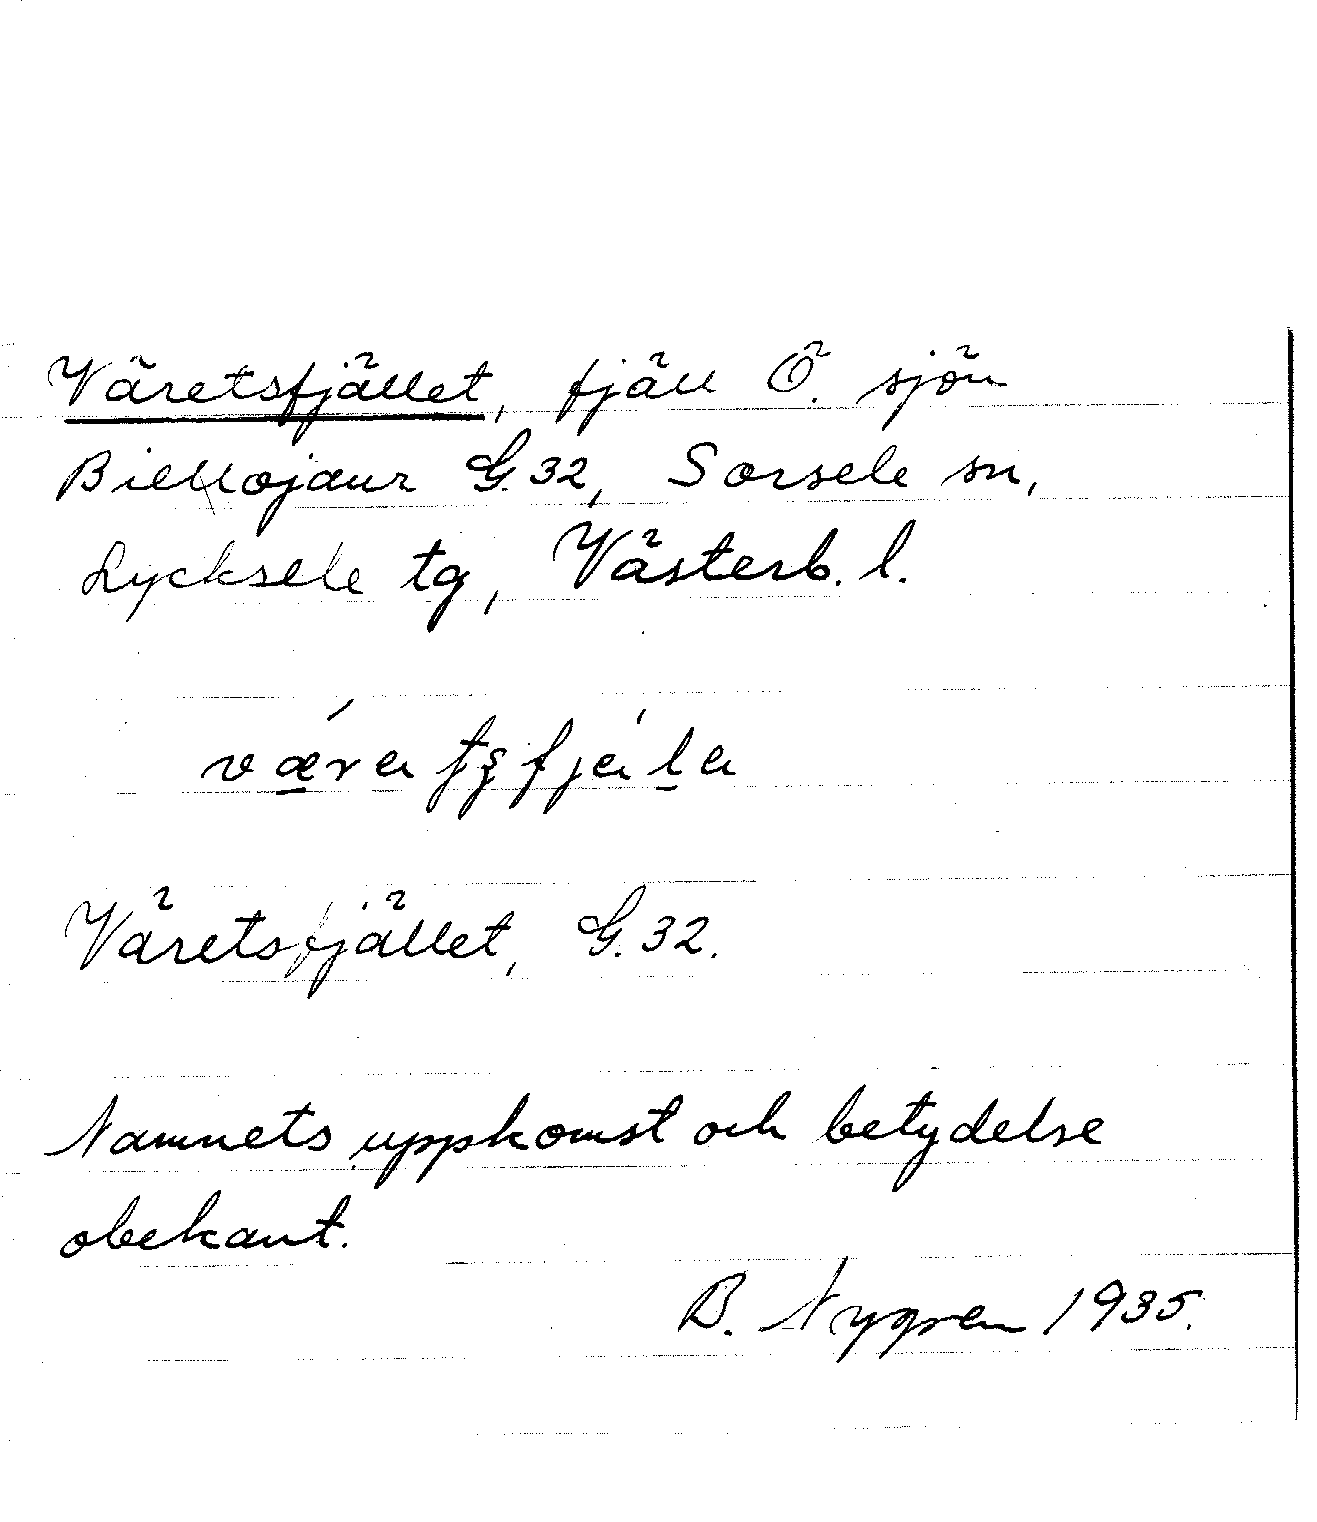 Väretsfjället, fjäll Ö. sjön
Biellojaur G.32, Sorsele sn,
Lycksele tg, Västerb. l.
Väretsfjället, G.32.
Namnets uppkomst och betydelse
obekant.
B. Nygren 1935.